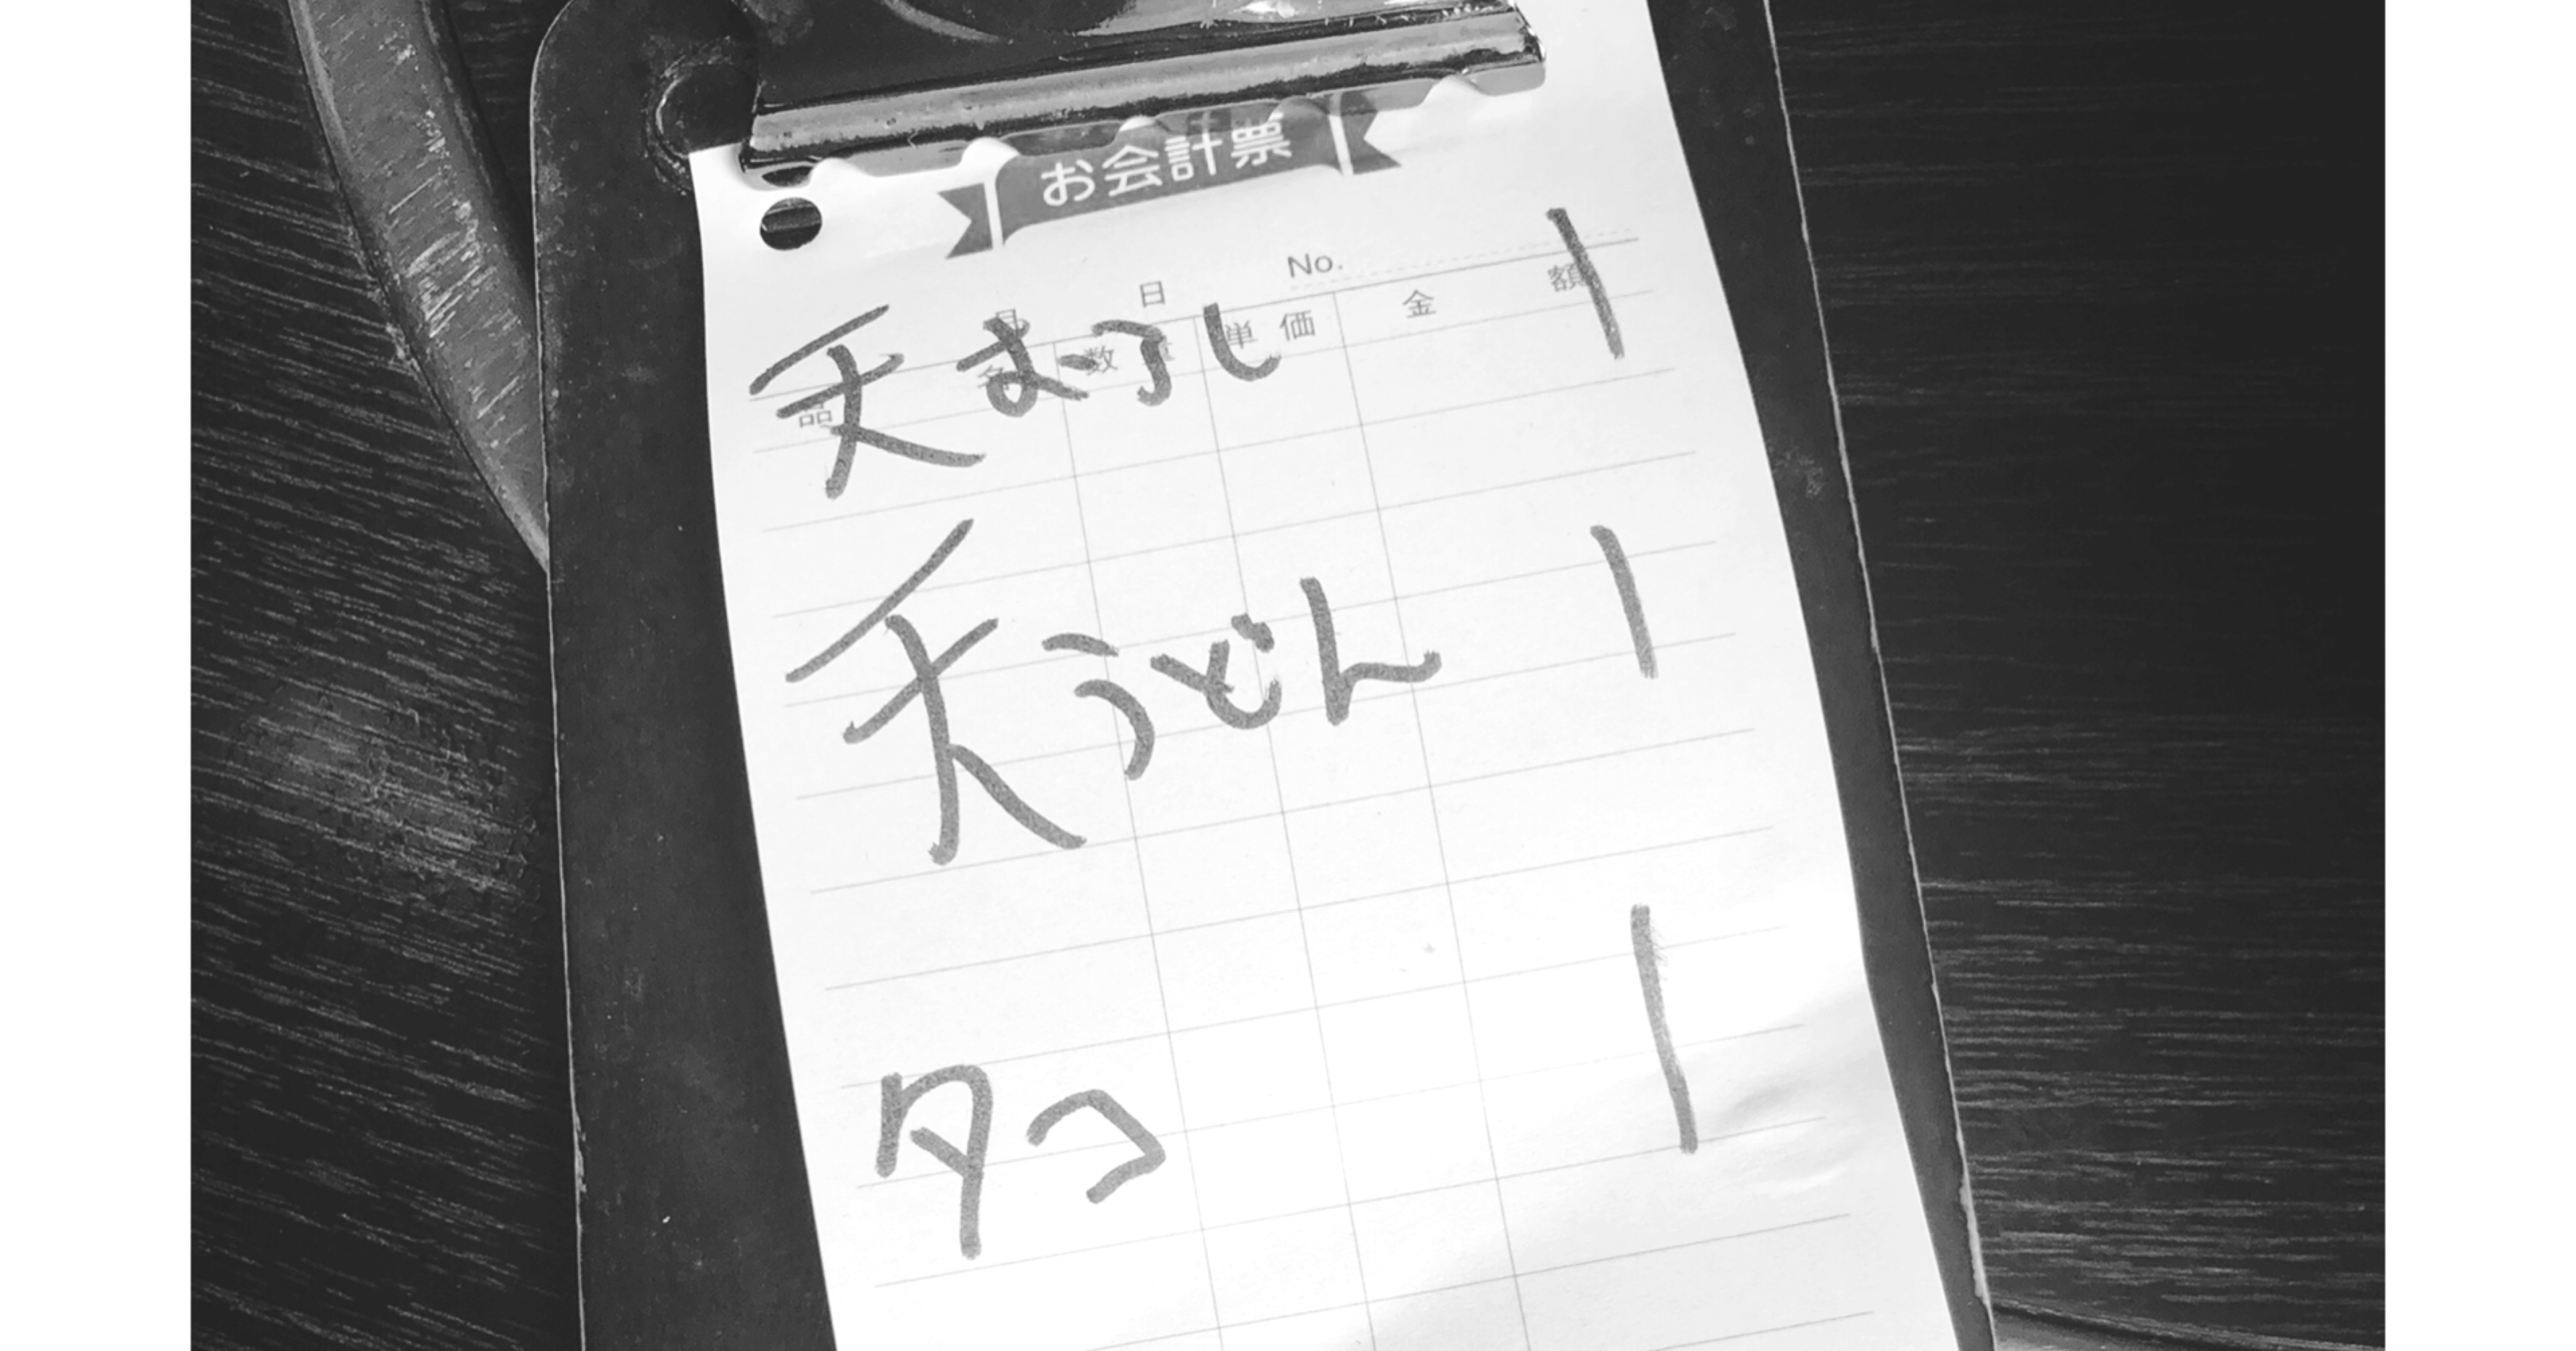 お会計票
月 日 No.
品名 数量 単価 金額
天おろし 1
天うどん 1
タコ 1